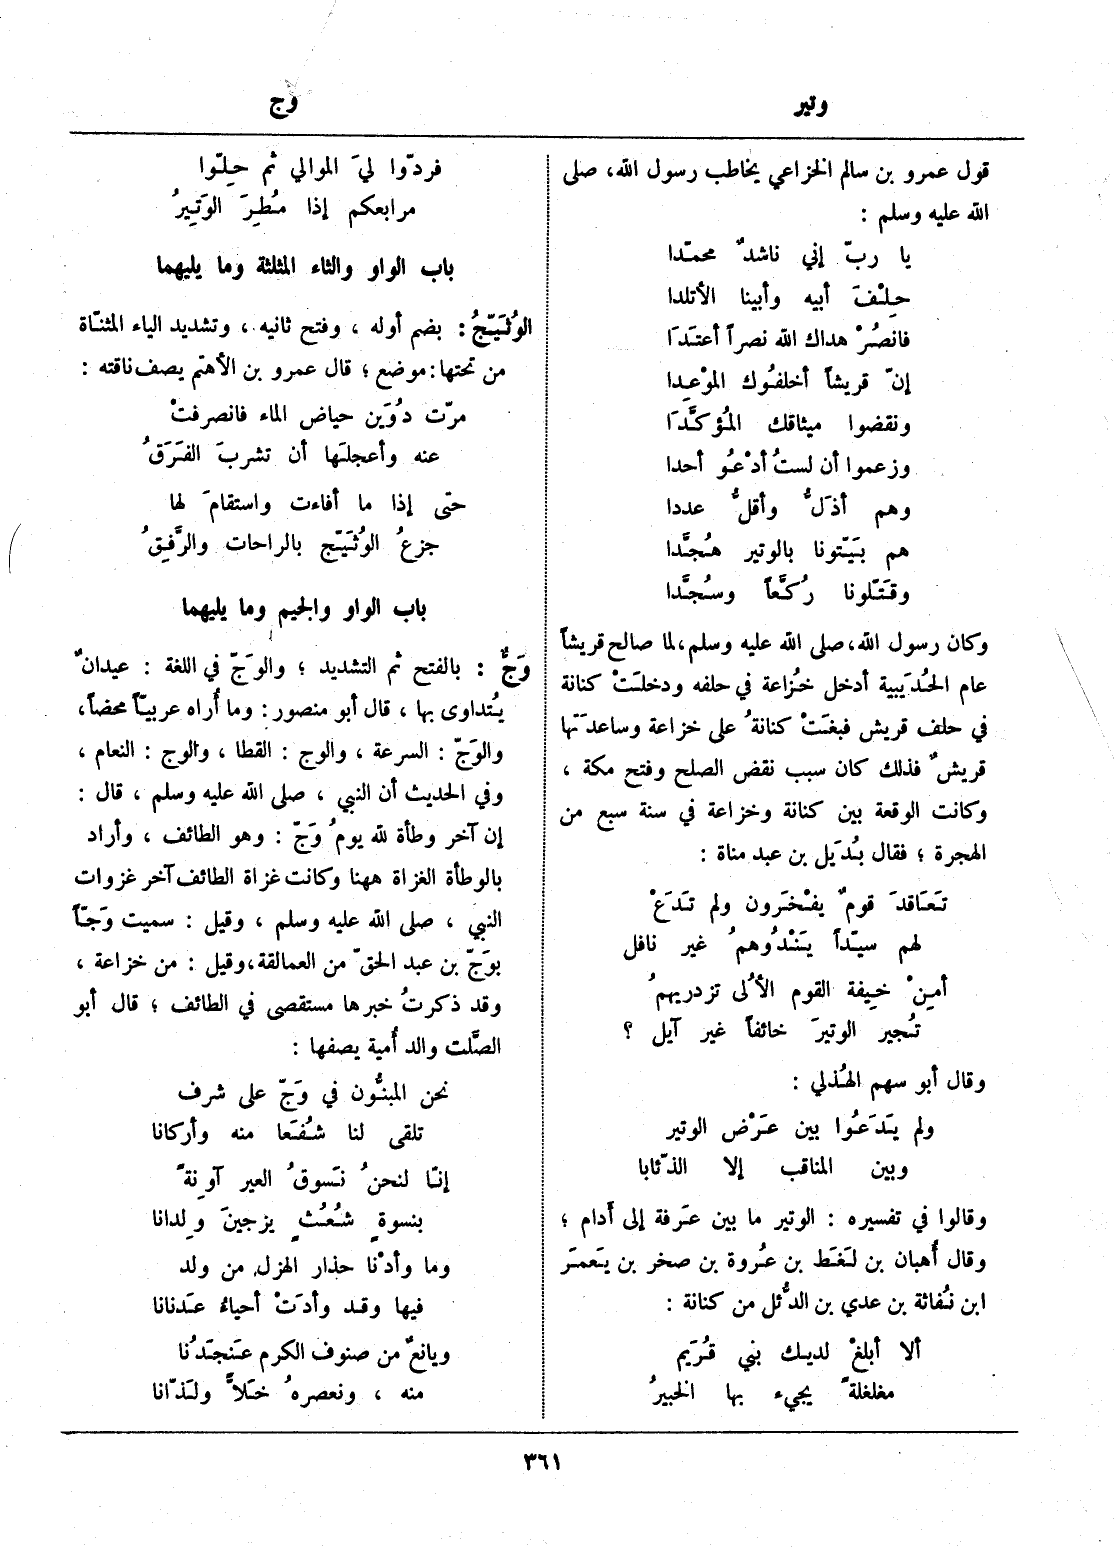 وتير
وج
قول عمرو بن سالم الخزاعي يخاطب رسول الله، صلى
الله عليه وسلم :
يا ربّ إني ناشدٌ محمّدا
حِلْفَ أبيه وأبينا الأتلدا
فانصُرْ هداك الله نصراً أعتَدَا
إنّ قريشاً أخلفُوك المَوْعِدا
ونقضوا ميثاقك المُؤكَّدَا
وزعموا أن لستُ أدْعُو أحدا
وهم أذَلُّ وأقلُّ عددا
هم بَيّتونا بالوتير هُجَّدا
وقَتَلونا رُكَّعاً وسُجَّدا
وكان رسول الله، صلى الله عليه وسلم، لما صالح قريشاً
عام الحُدَيبية أدخل خُزاعة في حلفه ودخلَتْ كنانة
في حلف قريش فبغَتْ كنانةُ على خزاعة وساعدَتها
قريشٌ فذلك كان سبب نقض الصلح وفتح مكة ،
وكانت الوقعة بين كنانة وخزاعة في سنة سبع من
الهجرة ؛ فقال بُدَيل بن عبد مناة :
تَعَاقدَ قومٌ يفْخَرون ولم تَدَعْ
لهم سيّداً يَنْدُوهمُ غير نافل
أمِنْ خِيفة القوم الأُلى تزدريهمُ
تُجير الوتيرَ خائفاً غير آيل ؟
وقال أبو سهم الهُذلي :
ولم يَدَعُوا بين عَرْض الوتير
وبين المناقب إلا الذّئابا
وقالوا في تفسيره : الوتير ما بين عَرفة إلى أَدام ؛
وقال أُهبان بن لَغَط بن عُروة بن صخر بن يَعمَرَ
ابن نُفاثة بن عدي بن الدُّئل من كنانة :
ألا أبلغْ لديك بني قُرَيم
مغلغلةً يجيء بها الخبيرُ
فردّوا ليَ الموالي ثم حِلّوا
مرابعكم إذا مُطِرَ الوَتِيرُ
باب الواو والثاء المثلثة وما يليهما
الوُثَيّجُ: بضم أوله ، وفتح ثانيه ، وتشديد الياء المثنّاة
من تحتها: موضع ؛ قال عمرو بن الأهتم يصف ناقته :
مرّت دُوَين حياض الماء فانصرفتْ
عنه وأعجلَها أن تشربَ الفَرَقُ
حتّى إذا ما أفاءت واستقامَ لها
جزعُ الوُثَيّج بالراحات والرَّفِقُ
باب الواو والجيم وما يليهما
وَجٌّ : بالفتح ثم التشديد ؛ والوَجّ في اللغة : عيدانٌ
يُتداوى بها ، قال أبو منصور : وما أُراه عربيّاً محضاً،
والوَجّ : السرعة ، والوج : القطا ، والوج : النعام ،
وفي الحديث أن النبي ، صلى الله عليه وسلم ، قال :
إن آخر وطأة لله يومُ وَجّ : وهو الطائف ، وأراد
بالوطأة الغزاة ههنا وكانت غزاة الطائف آخر غزوات
النبي ، صلى الله عليه وسلم ، وقيل : سميت وَجّاً
بوَجّ بن عبد الحقّ من العمالقة، وقيل : من خزاعة ،
وقد ذكرتُ خبرها مستقصى في الطائف ؛ قال أبو
الصَّلت والد أُمية يصفها :
نحن المبنُّون في وَجّ على شرف
تلقى لنا شُفَعا منه وأركانا
إنّا لنحنُ نَسوقُ العير آونةً
بنسوةٍ شُعُثٍ يزجينَ وِلدانا
وما وأدْنا حذار الهزل من ولد
فيها وقد وأدَتْ أحياءُ عَدنانا
ويانعٌ من صنوف الكرم عَنجدُنا
منه ، ونعصرهُ خَلاًّ ولَذّانا
٣٦١